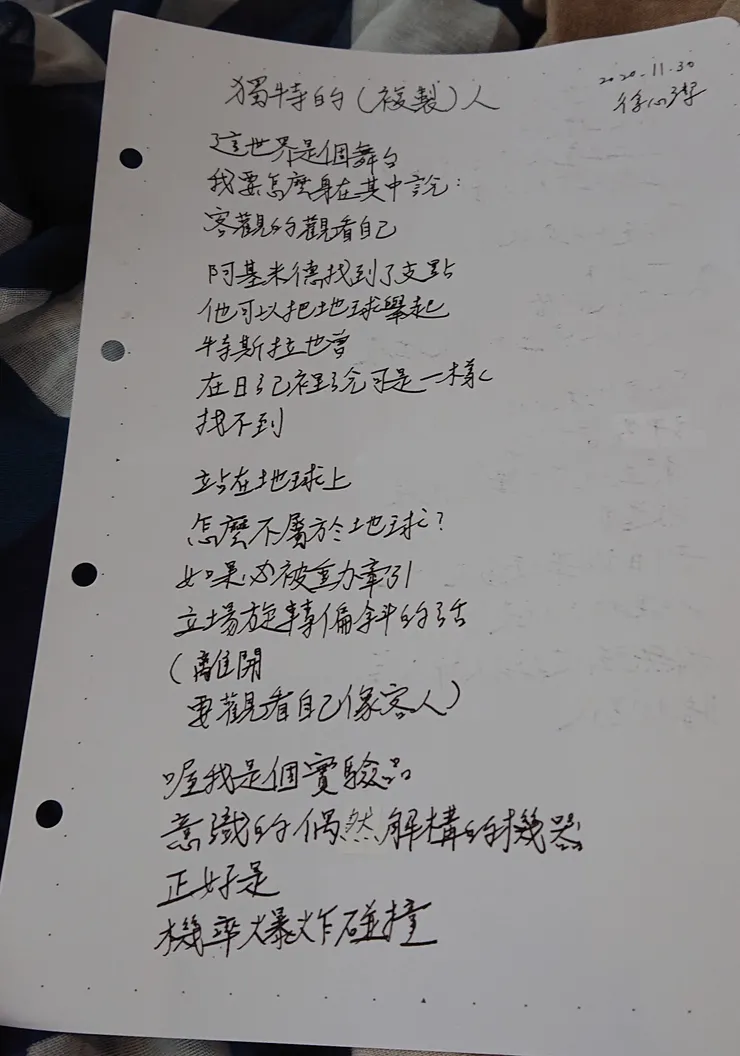 獨特的(複製)人
2020.11.30
徐心潔
這世界是個舞台
我要怎麼身在其中說:
客觀的觀看自己
阿基米德找到了支點
他可以把地球舉起
特斯拉也曾
在日記裡說可是一樣
找不到
站在地球上
怎麼不屬於地球?
如果必被重力牽引
立場旋轉偏斜的話
(離開
要觀看自己像客人)
喔我是個實驗品
意識的偶然解構的機器
正好是
機率爆炸碰撞